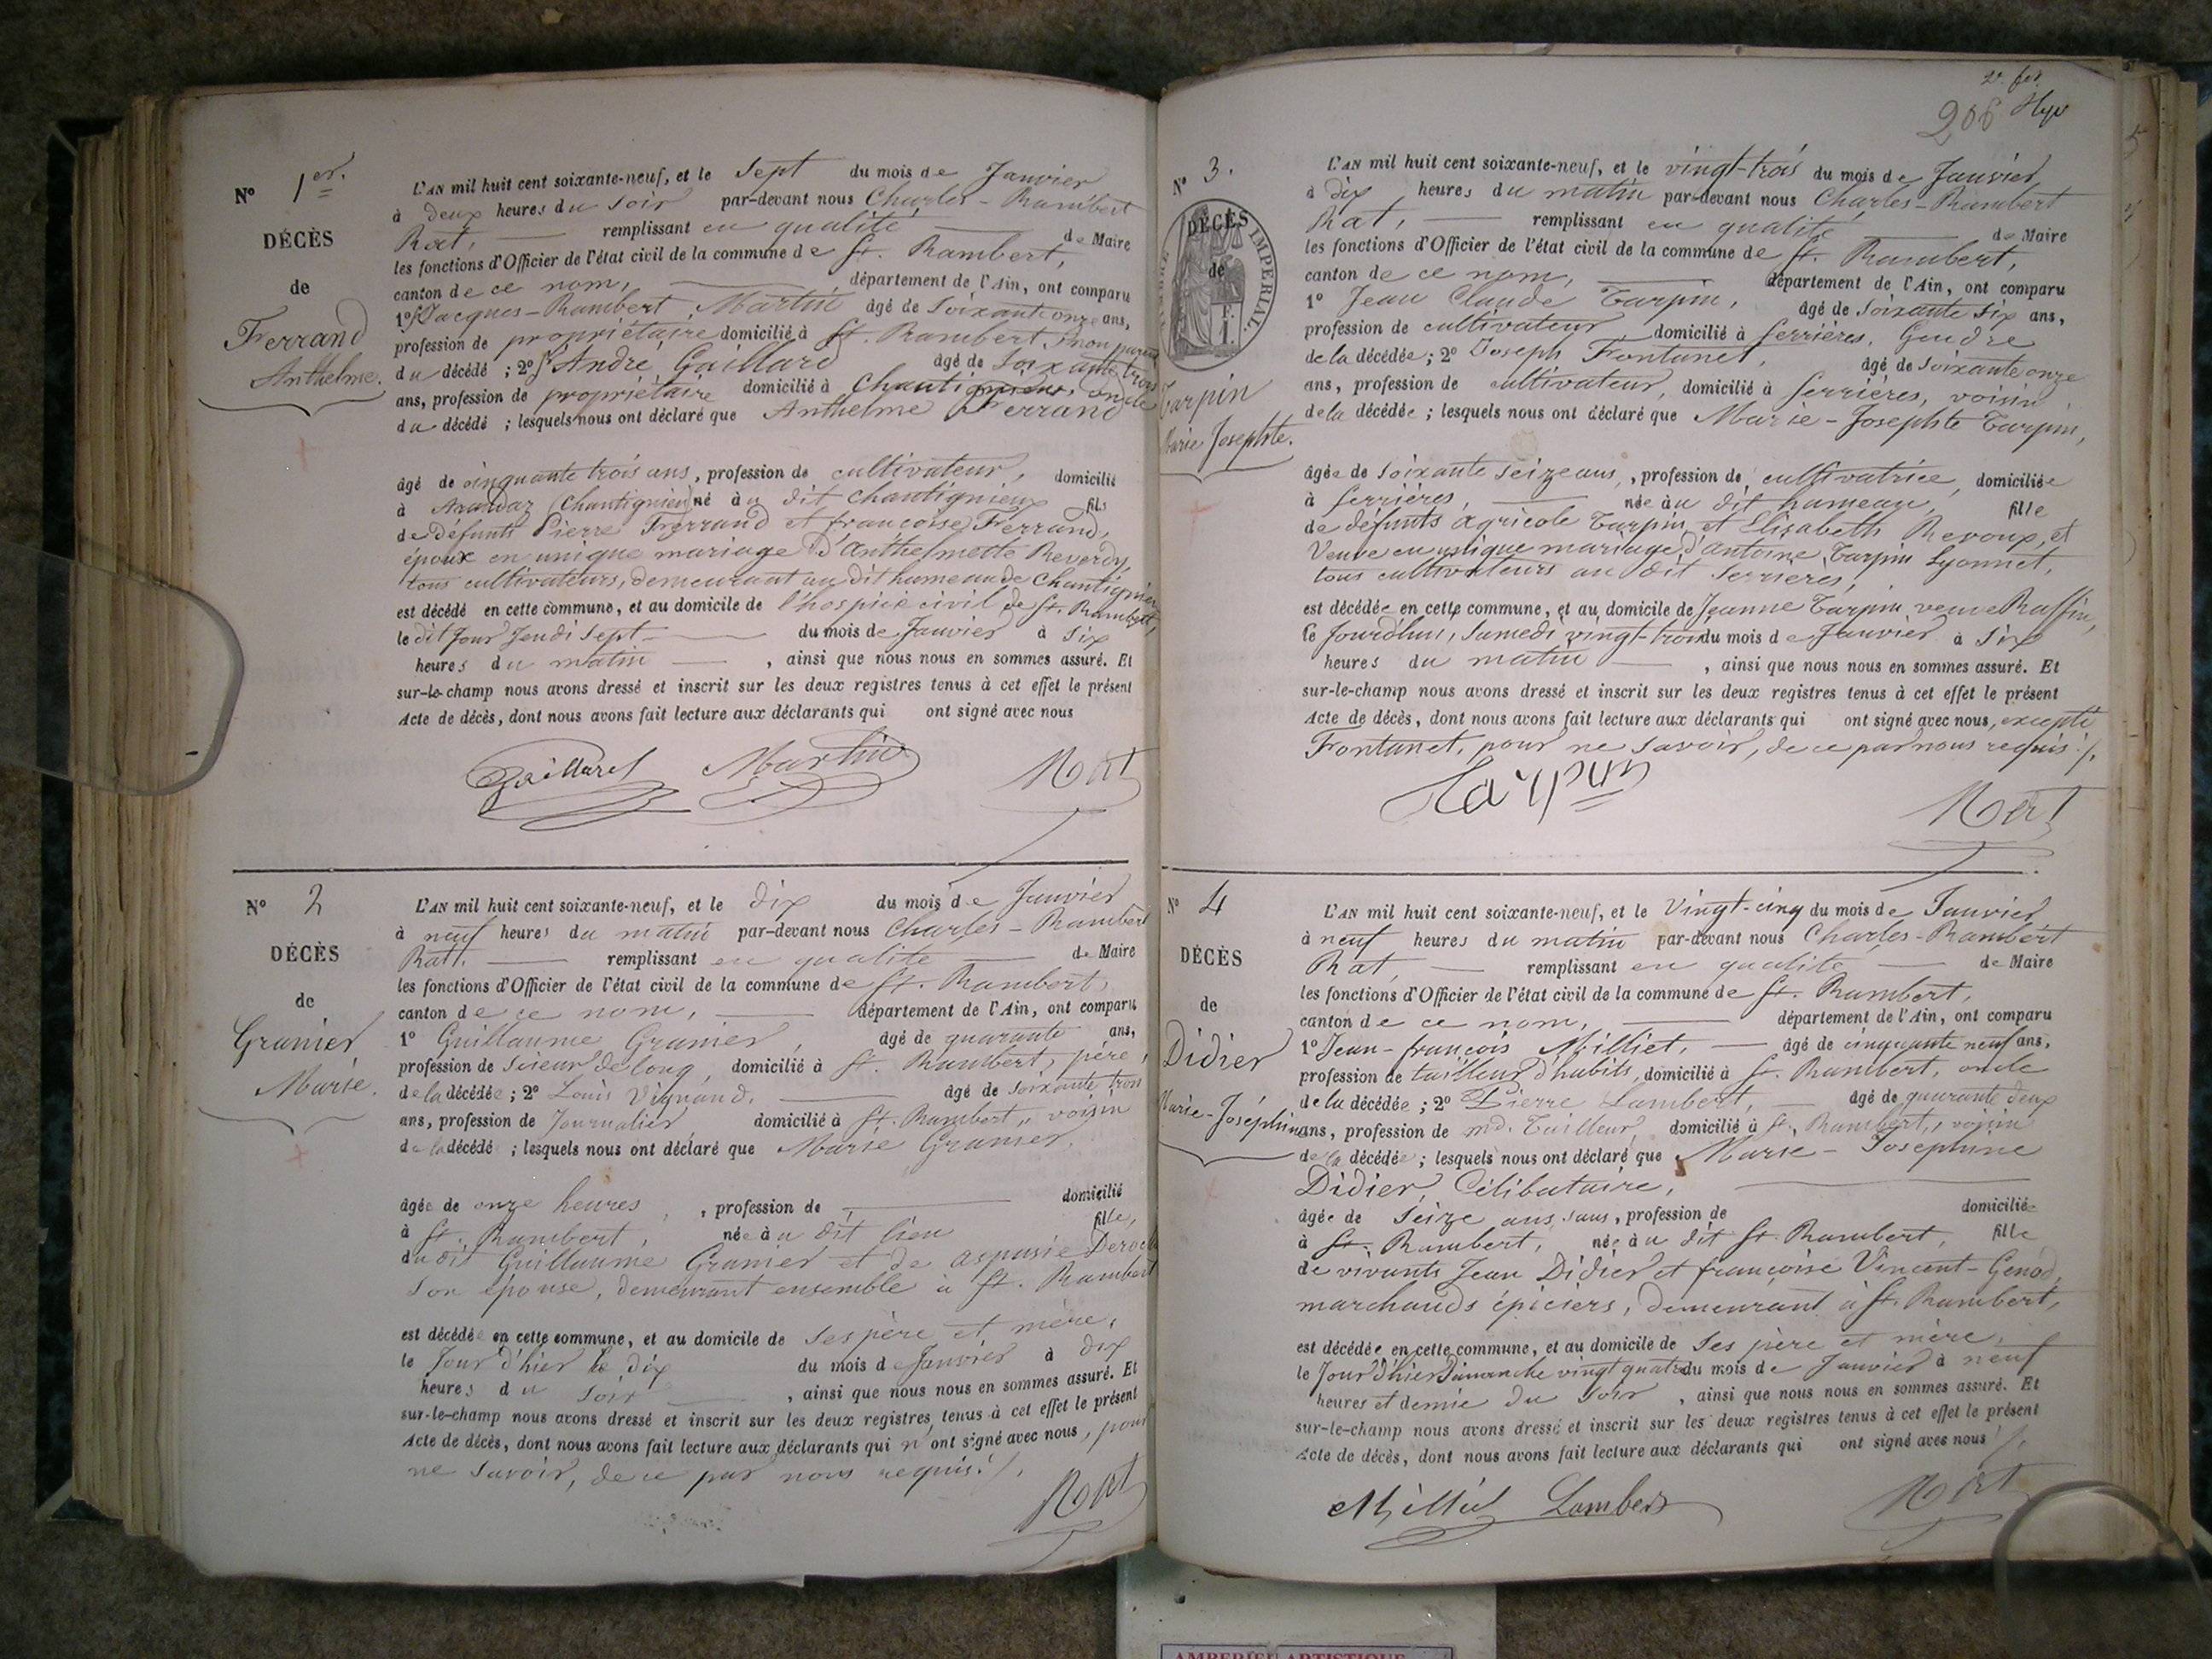 N° 1er.
DÉCÈS
de
Ferrand
Anthelme.
L'AN mil huit cent soixante-neuf, et le sept du mois de Janvier
à deux heures du soir par-devant nous Charles-Rambert
Rat, remplissant en qualité de Maire
les fonctions d'Officier de l'état civil de la commune de St. Rambert,
canton de ce nom, département de l'Ain, ont comparu
1° Jacques-Rambert Martin âgé de soixante onze ans,
profession de propriétaire domicilié à St. Rambert, non parent
du décédé ; 2° André Gaillard âgé de soixante trois
ans, profession de propriétaire domicilié à Chantignieux, oncle
du décédé ; lesquels nous ont déclaré que Anthelme Ferrand
âgé de cinquante trois ans, profession de cultivateur, domicilié
à Arandaz (Chantignieu) né au dit Chantignieux fils
de défunts Pierre Ferrand et françoise Ferrand,
époux en unique mariage d'Anthelmette Reverdy,
tous cultivateurs, demeurant au dit hameau de Chantignieu
est décédé en cette commune, et au domicile de l'hospice civil de St. Rambert,
le dit Jour Jeudi sept du mois de Janvier à six
heures du matin , ainsi que nous nous en sommes assuré. Et
sur-le-champ nous avons dressé et inscrit sur les deux registres tenus à cet effet le présent
Acte de décès, dont nous avons fait lecture aux déclarants qui ont signé avec nous
Gaillard Martin Rat
N° 2
DÉCÈS
de
Granier
Marie.
L'AN mil huit cent soixante-neuf, et le dix du mois de Janvier
à neuf heures du matin par-devant nous Charles-Rambert
Rat, remplissant en qualité de Maire
les fonctions d'Officier de l'état civil de la commune de St. Rambert,
canton de ce nom, département de l'Ain, ont comparu
1° Guillaume Granier, âgé de quarante ans,
profession de scieur de long, domicilié à St. Rambert, père,
de la décédée ; 2° Louis Vignand, âgé de soixante trois
ans, profession de Journalier, domicilié à St. Rambert, voisin
de la décédé ; lesquels nous ont déclaré que Marie Granier,
âgée de onze heures , profession de , domicilié
à St. Rambert, née au dit lieu fille,
du dit Guillaume Granier et de Aspasie
son épouse, demeurant ensemble à St. Rambert
est décédée en cette commune, et au domicile de ses père et mère,
le Jour d'hier le dix du mois de Janvier à dix
heures du soir , ainsi que nous nous en sommes assuré. Et
sur-le-champ nous avons dressé et inscrit sur les deux registres tenus à cet effet le présent
Acte de décès, dont nous avons fait lecture aux déclarants qui n'ont signé avec nous, pour
ne savoir, de ce par nous requis./.
Rat
206
N° 3.
DÉCÈS
de
TIMBRE IMPÉRIAL.
Tarpin
Marie Josephte.
L'AN mil huit cent soixante-neuf, et le vingt-trois du mois de Janvier
à dix heures du matin par-devant nous Charles-Rambert
Rat, remplissant en qualité de Maire
les fonctions d'Officier de l'état civil de la commune de St. Rambert,
canton de ce nom, département de l'Ain, ont comparu
1° Jean Claude Tarpin, âgé de soixante six ans,
profession de cultivateur domicilié à Serrières, Gendre
de la décédée ; 2° Joseph Fontanet, âgé de soixante onze
ans, profession de cultivateur, domicilié à Serrières, voisin
de la décédée ; lesquels nous ont déclaré que Marie-Josephte Tarpin,
âgée de soixante seize ans, , profession de cultivatrice, domiciliée
à Serrières, née au dit hameau, fille
de défunts Agricole Tarpin et Elisabeth Revoux, et
Veuve en unique mariage d'Antoine Tarpin Lyonnet,
tous cultivateurs au dit Serrières,
est décédée en cette commune, et au domicile de Jeanne Tarpin veuve Raffin,
le Jourd'hui, Samedi vingt-trois du mois de Janvier à six
heures du matin , ainsi que nous nous en sommes assuré. Et
sur-le-champ nous avons dressé et inscrit sur les deux registres tenus à cet effet le présent
Acte de décès, dont nous avons fait lecture aux déclarants qui ont signé avec nous, excepté
Fontanet, pour ne savoir, de ce par nous requis./.
Tarpin Rat
N° 4
DÉCÈS
de
Didier
Marie-Joséphine
L'AN mil huit cent soixante-neuf, et le Vingt-cinq du mois de Janvier
à neuf heures du matin par-devant nous Charles-Rambert
Rat, remplissant en qualité de Maire
les fonctions d'Officier de l'état civil de la commune de St. Rambert,
canton de ce nom, département de l'Ain, ont comparu
1° Jean-françois Milliet, âgé de cinquante neuf ans,
profession de tailleur d'habits, domicilié à St. Rambert, oncle
de la décédée ; 2° Pierre Lambert, âgé de quarante deux
ans, profession de md. Tailleur, domicilié à St. Rambert, voisin
de la décédée ; lesquels nous ont déclaré que Marie-Josephine
Didier, Célibataire,
âgée de seize ans, sans, profession de domiciliée
à St. Rambert, née au dit St. Rambert, fille
de vivants Jean Didier et françoise Vincent-Genod,
marchands épiciers, demeurant à St. Rambert,
est décédée en cette commune, et au domicile de ses père et mère,
le Jour d'hier Dimanche vingt quatre du mois de Janvier à neuf
heures et demie du soir , ainsi que nous nous en sommes assuré. Et
sur-le-champ nous avons dressé et inscrit sur les deux registres tenus à cet effet le présent
Acte de décès, dont nous avons fait lecture aux déclarants qui ont signé avec nous /.
Milliet Lambert Rat
AMBERIEU ARTISTIQUE